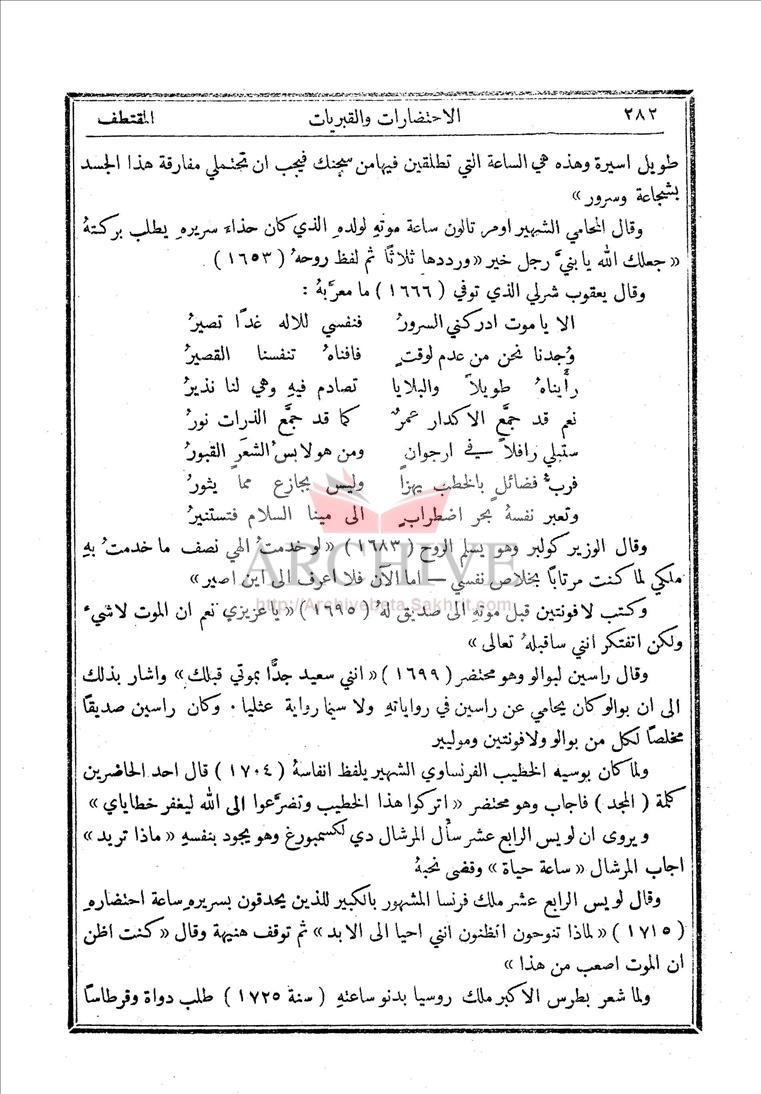 ٢٨٢ الاحتضارات والقبريات المقتطف
طويل اسيرة وهذه هي الساعة التي تطلقين فيها من سجنك فيجب ان تحتملي مفارقة هذا الجسد
بشجاعة وسرور »
وقال المحامي الشهير اومر تالون ساعة موتهِ لولده الذي كان حذاء سريره يطلب بركتهُ
« جعلك الله يا بنيَّ رجل خير » ورددها ثلاثًا ثم لفظ روحهُ ( ١٦٥٣ )
وقال يعقوب شرلي الذي توفي ( ١٦٦٦ ) ما معرَّبهُ :
الا يا موت ادركني السرورُ فنفسي للاله غدًا تصيرُ
وُجدنا نحن من عدم لوقتٍ فافناهُ تنفسنا القصيرُ
رأيناهُ طويلاً والبلايا تصادم فيهِ وهي لنا نذيرُ
نعم قد جمَّع الاكدار عمرٌ كما قد جمَّع الذرات نورُ
ستبلي رافلاً في ارجوان ومن هو لابس الشعَر القبورُ
فربُّ فضائل بالخطب يهزأ وليس بجازع مما يثورُ
وتعبر نفسهُ بحر اضطرابٍ الى مينا السلام فتستنيرُ
وقال الوزير كولبر وهو يسلم الروح ( ١٦٨٣ ) « لو خدمتُ الهي نصف ما خدمتُ بهِ
ملكي لما كنت مرتابًا بخلاص نفسي — اما الآن فلا اعرف الى اين اصير »
وكتب لافونتين قبل موتهِ الى صديق لهُ ( ١٦٩٥ ) « يا عزيزي نعم ان الموت لا شيء
ولكن اتفتكر انني ساقبلهُ تعالى »
وقال راسين لبوالو وهو محتضر ( ١٦٩٩ ) « انني سعيد جدًّا بموتي قبلك » واشار بذلك
الى ان بوالو كان يحامي عن راسين في رواياتهِ ولا سيما رواية عثليا . وكان راسين صديقًا
مخلصًا لكل من بوالو ولافونتين وموليير
ولما كان بوسيه الخطيب الفرنساوي الشهير يلفظ انفاسهُ ( ١٧٠٤ ) قال احد الحاضرين
كلمة ( المجد ) فاجاب وهو محتضر « اتركوا هذا الخطيب وتضرَّعوا الى الله ليغفر خطاياي »
و يروى ان لويس الرابع عشر سأل المرشال دي لكسمبورغ وهو يجود بنفسهِ « ماذا تريد »
اجاب المرشال « ساعة حياة » وقضى نحبهُ
وقال لويس الرابع عشر ملك فرنسا المشهور بالكبير للذين يحدقون بسريره ساعة احتضاره
( ١٧١٥ ) « لماذا تنوحون اتظنون انني احيا الى الابد » ثم توقف هنيهة وقال « كنت اظن
ان الموت اصعب من هذا »
ولما شعر بطرس الاكبر ملك روسيا بدنو ساعتهِ ( سنة ١٧٢٥ ) طلب دواة وقرطاسًا
ARCHIVE
http://Archivebeta.Sakhrit.com